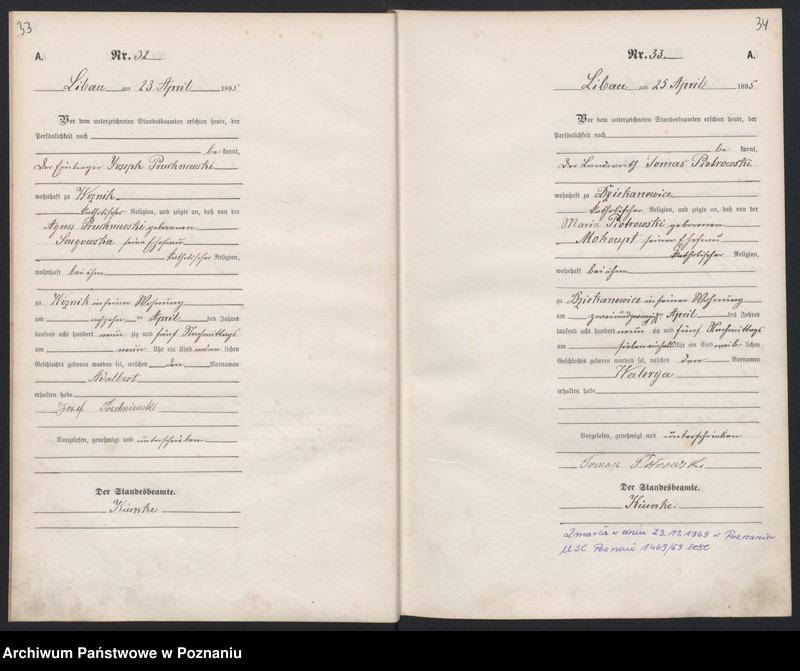 33
A. Nr. 32
Libau am 23 April 1895
Vor dem unterzeichneten Standesbeamten erschien heute, der
Persönlichkeit nach
be kannt,
der Joseph Pruchniewski
wohnhaft zu Woznik
katholischer Religion, und zeigte an, daß von der
Agnes Pruchniewski geborenen
seine Ehefrau
katholischer Religion,
wohnhaft bei ihm
zu Woznik in seiner Wohnung
am achzehn ten April des Jahres
tausend acht hundert neun zig und fünf Nachmittags
um neun Uhr ein Kind männ lichen
Geschlechts geboren worden sei, welches den Vornamen
Adalbert
erhalten habe
Józef
Vorgelesen, genehmigt und unterschrieben
Der Standesbeamte.
Kiunke
34
Nr. 33. A.
Libau am 25 April 1895
Vor dem unterzeichneten Standesbeamten erschien heute, der
Persönlichkeit nach
be kannt,
der Landwirth Tomas Piotrowski
wohnhaft zu Dziekanowice
katholischer Religion, und zeigte an, daß von der
Maria Piotrowski geborenen
seiner Ehefrau
katholischer Religion,
wohnhaft bei ihm
zu Dziekanowice in seiner Wohnung
am zweiundzwanzig ten April des Jahres
tausend acht hundert neun zig und fünf Nachmittags
um Uhr ein Kind weib lichen
Geschlechts geboren worden sei, welches den Vornamen
Walerya
erhalten habe
Vorgelesen, genehmigt und unterschrieben
Tomasz
Der Standesbeamte.
Kiunke.
Zmarła w dniu 23.11.1969 w Poznaniu
USC Poznań 1469/69
Archiwum Państwowe w Poznaniu